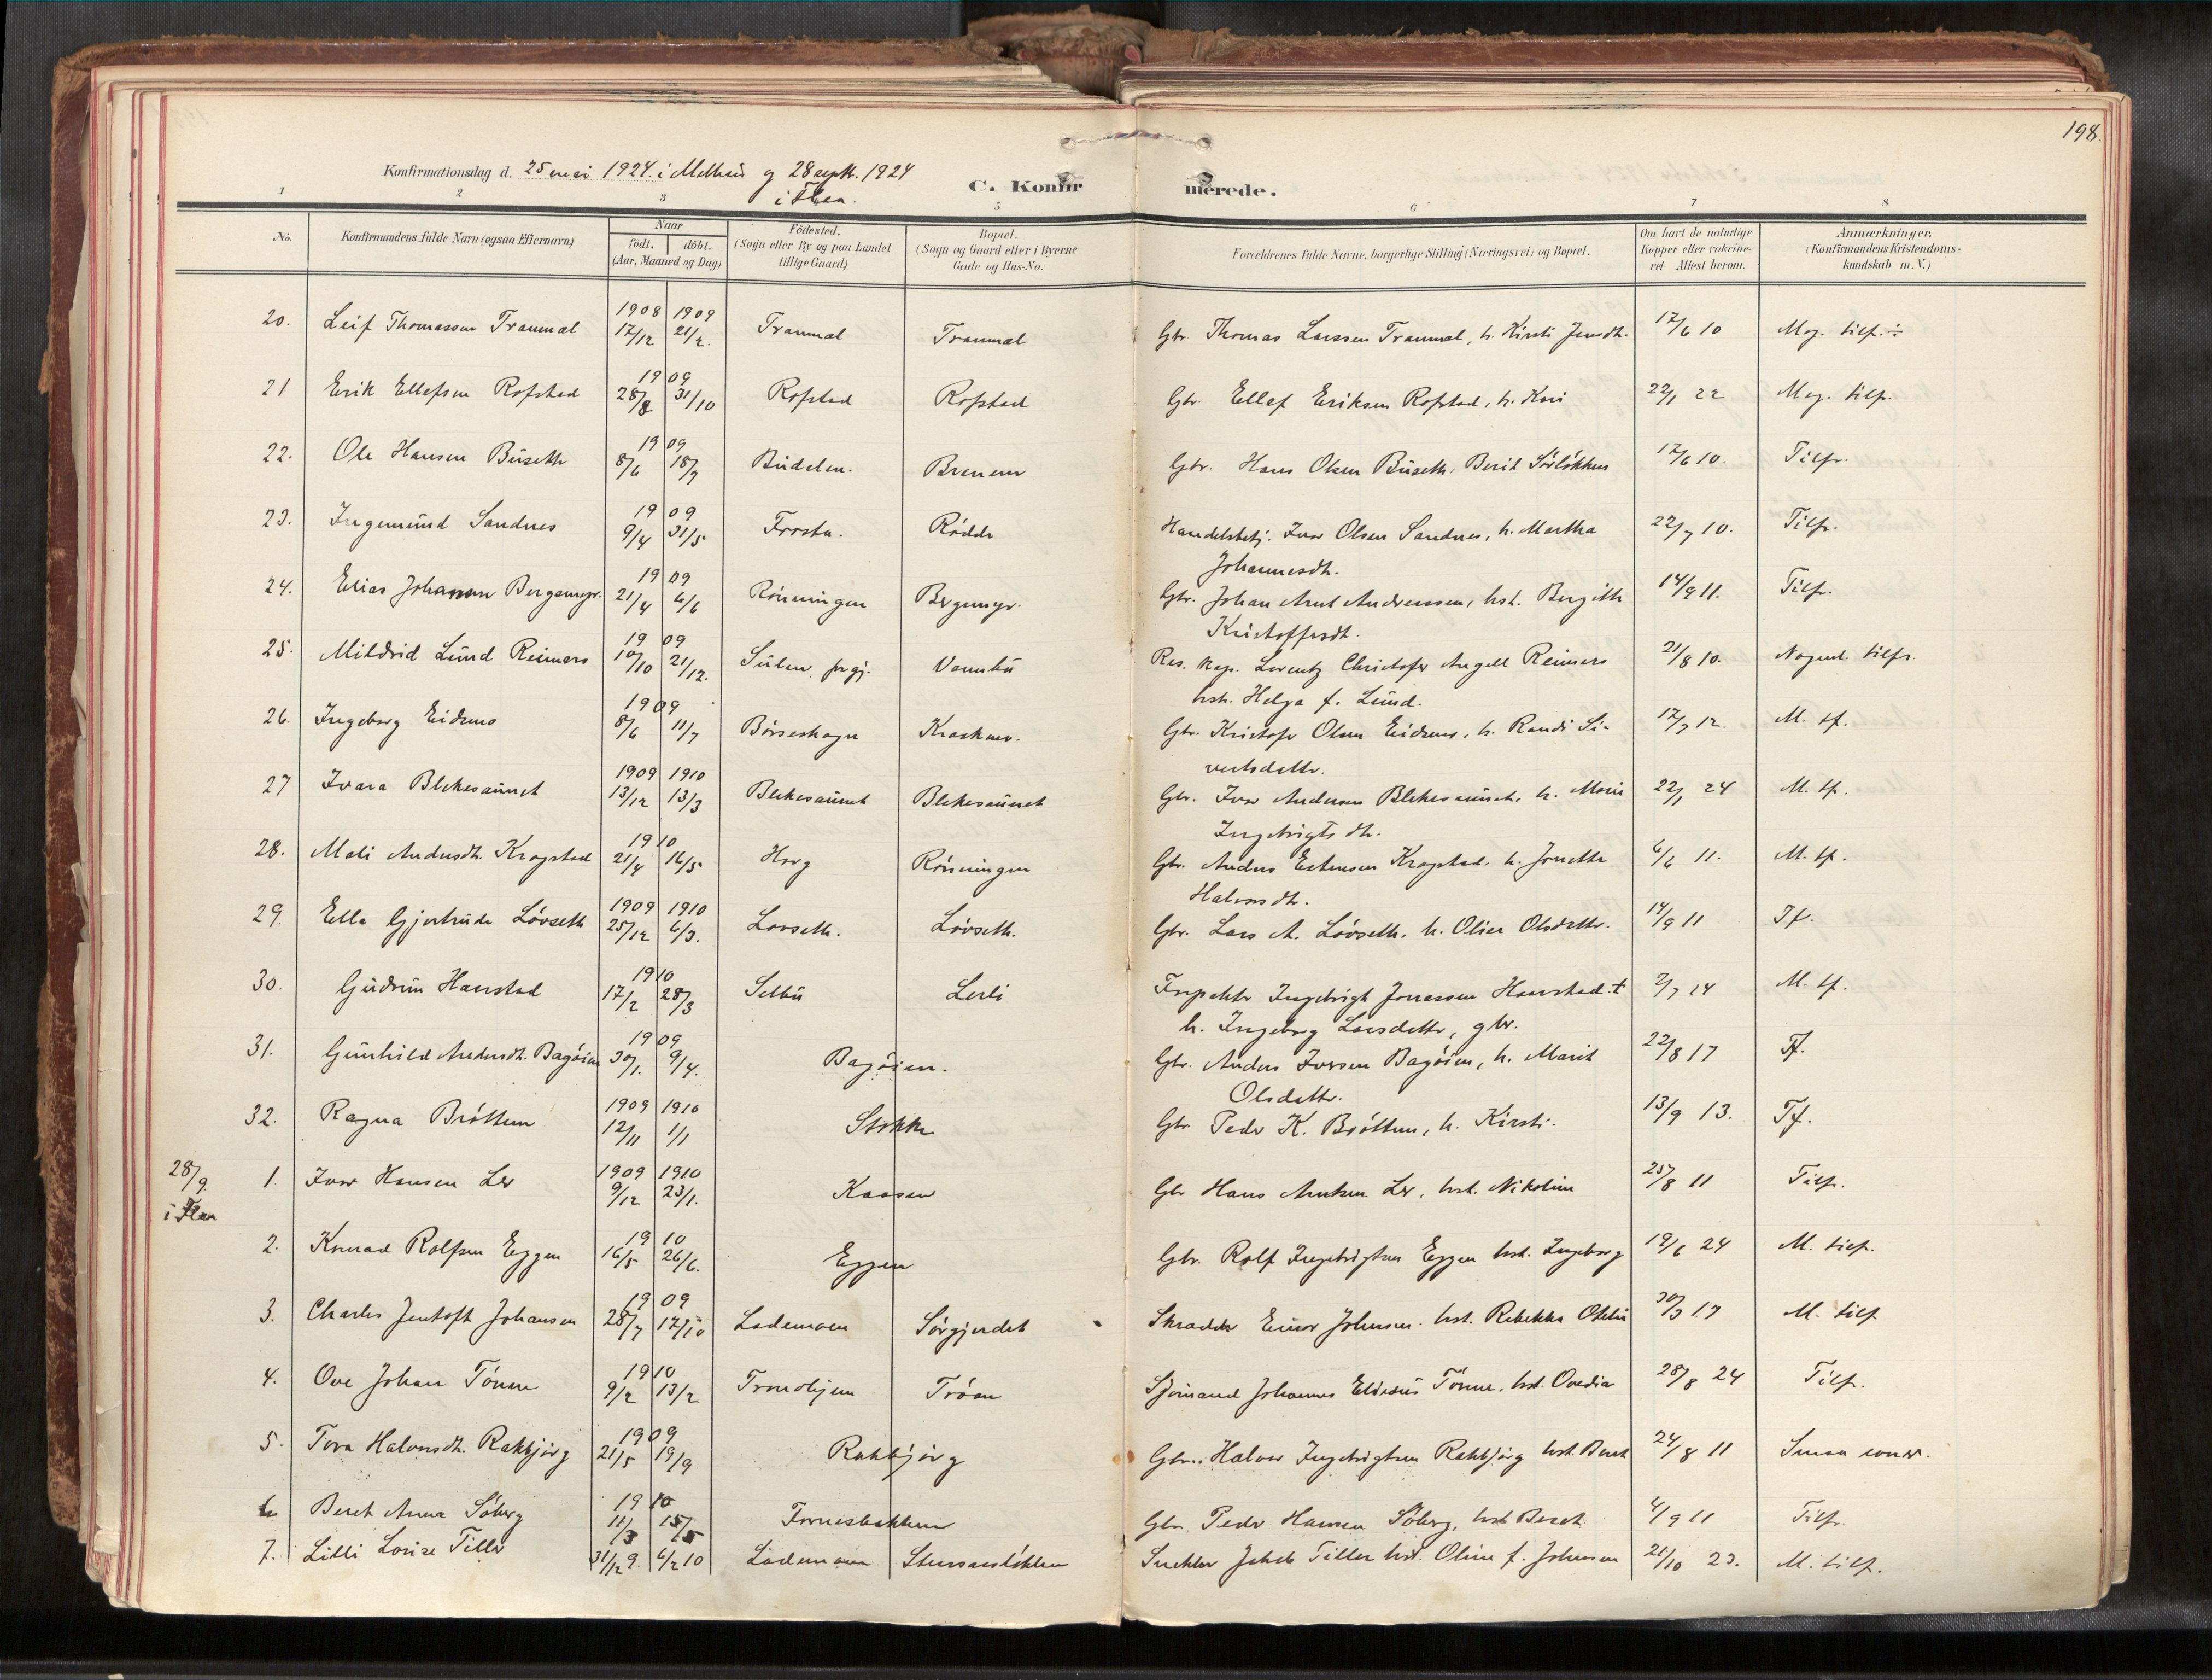 198.
Konfirmationsdag d. 25 mai 1924 i Melhus og 28 sept. 1924
i Flaa.
C. Konfirmerede.
1 2 3 5 6 7 8
No. Konfirmandens fulde Navn (ogsaa Efternavn) Naar født. døbt. (Aar, Maaned og Dag) Fødested. (Sogn eller By og paa Landet tillige Gaard) Bopæl. (Sogn og Gaard eller i Byerne Gade og Hus-No. Forældrenes fulde Navne, borgerlige Stilling (Næringsvei) og Bopæl. Om havt de naturlige Kopper eller vaccineret Attest herom. Anmærkninger. (Konfirmandens Kristendomskundskab m. V.)
20. Leif Thomassen Tranmæl 1908 17/12 1909 21/2. Tranmæl Tranmæl Gbr. Thomas Larssen Tranmæl, h. Kirsti Jensdt. 17/6 10 Meg. tilf. ÷
21 Erik Ellefsen Rofstad 1909 28/8 31/10 Rofstad Rofstad Gbr. Ellef Eriksen Rofstad, h. Kari 22/1 22 Meg. tilf.
22. Ole Hansen Buseth 1909 8/6 18/7 Budalen. Brenem Gbr. Hans Olsen Buseth. Berit Sørløkken 17/6 10. Tilfr.
23. Ingemund Sandnes 1909 9/4 31/5 Frosta. Rødde Handelsbetj. Ivar Olsen Sandnes, h. Martha 22/7 10. Tilfr.
Johannesdt.
24. Elias Johansen Bergemyr. 1909 21/4 6/6 Rønningen Bergemyr. Gbr. Johan Arnt Andreassen, hst. Bergitte 14/9 11. Tilfr.
Kristoffersdt.
25. Mildrid Lund Reimers 1909 10/10 21/12. Sulen prgj. Varmbu Res. kap. Lorentz Christofer Angell Reimers 21/8 10. Noget tilfr.
hst. Helga f. Lund.
26. Ingeborg Eidsmo 1909 8/6 11/7 Børseskogn Kraakmo. Gbr. Kristofer Olsen Eidsmo, h. Randi Si- 17/7 12. M. tf.
vertsdatter.
27 Ivara Blekesaunet 1909 13/12 1910 13/3 Blekesaunet Blekesaunet Gbr. Ivar Andersen Blekesaunet, h. Marie 22/1 24 M. tf.
Ingebrigtsdt.
28. Mali Andersdt. Krogstad 1910 21/4 16/5 Horg Rønningen Gbr. Anders Estensen Krogstad. h. Jonette 6/6 11. M. tf.
Halvorsdt.
29. Ella Gjertrude Løvseth 1909 25/12 1910 6/3. Løvseth. Løvseth. Gbr. Lars A. Løvseth. h. Oline Olsdatter. 14/9 11 Tf.
30. Gudrun Haarstad 1910 17/2 28/3 Selbu Lerli Inspektør Ingebrigt Jonassen Haarstad † 2/7 14 M. tf.
h. Ingeborg Larsdatter, gbr.
31. Gunhild Andersdt. Bagøien 1909 30/1. 9/4. Bagøien. Gbr. Anders Iversen Bagøien, h. Marit 22/8 17 Tf.
Olsdatter.
32. Ragna Brøttem 1909 12/11 1910 1/1 Stokke Gbr. Peder K. Brøttem, h. Kirsti. 13/9 13. Tf.
28/9. i Flaa
1. Ivar Hansen Ler 1909 9/12 1910 23/1. Kaasen Gbr Hans Arntsen Ler, hst. Nikoline 25/8 11 Tilfr.
2. Konrad Rolfsen Eggen 1910 16/5 26/6. Eggen Gbr. Rolf Ingebrigtsen Eggen hst. Ingeborg 19/6 24 M. tilf.
3. Charles Jentoft Johansen 1909 28/7 17/10 Lademoen Sørgjerdet Skrædder Einar Johansen. hst. Rebekka Otelie 30/3 17 M. tilf
4. Ove Johan Tønne 1910 9/2 13/2 Trondhjem Trøen Sjømand Johannes Elidius Tønne, hst. Ovedia 28/8 24 Tilf.
5. Tora Halvorsdt. Rakbjørg 1909 21/5 19/9 Rakbjørg Gbr. Halvor Ingebrigtsen Rakbjørg hst. Beret 24/8 11 Smaa evner.
6. Beret Anna Søberg 1910 11/3 15/5 Fornesbakken Gbr. Peder Hansen Søberg, hst. Beret 4/9 11 Tilfr.
7. Lilli Lovise Tiller 31/12 9. 6/2 10 Lademoen Snekker Jakob Tiller hst. Oline f. Johnsen 21/10 23. M. tilf.